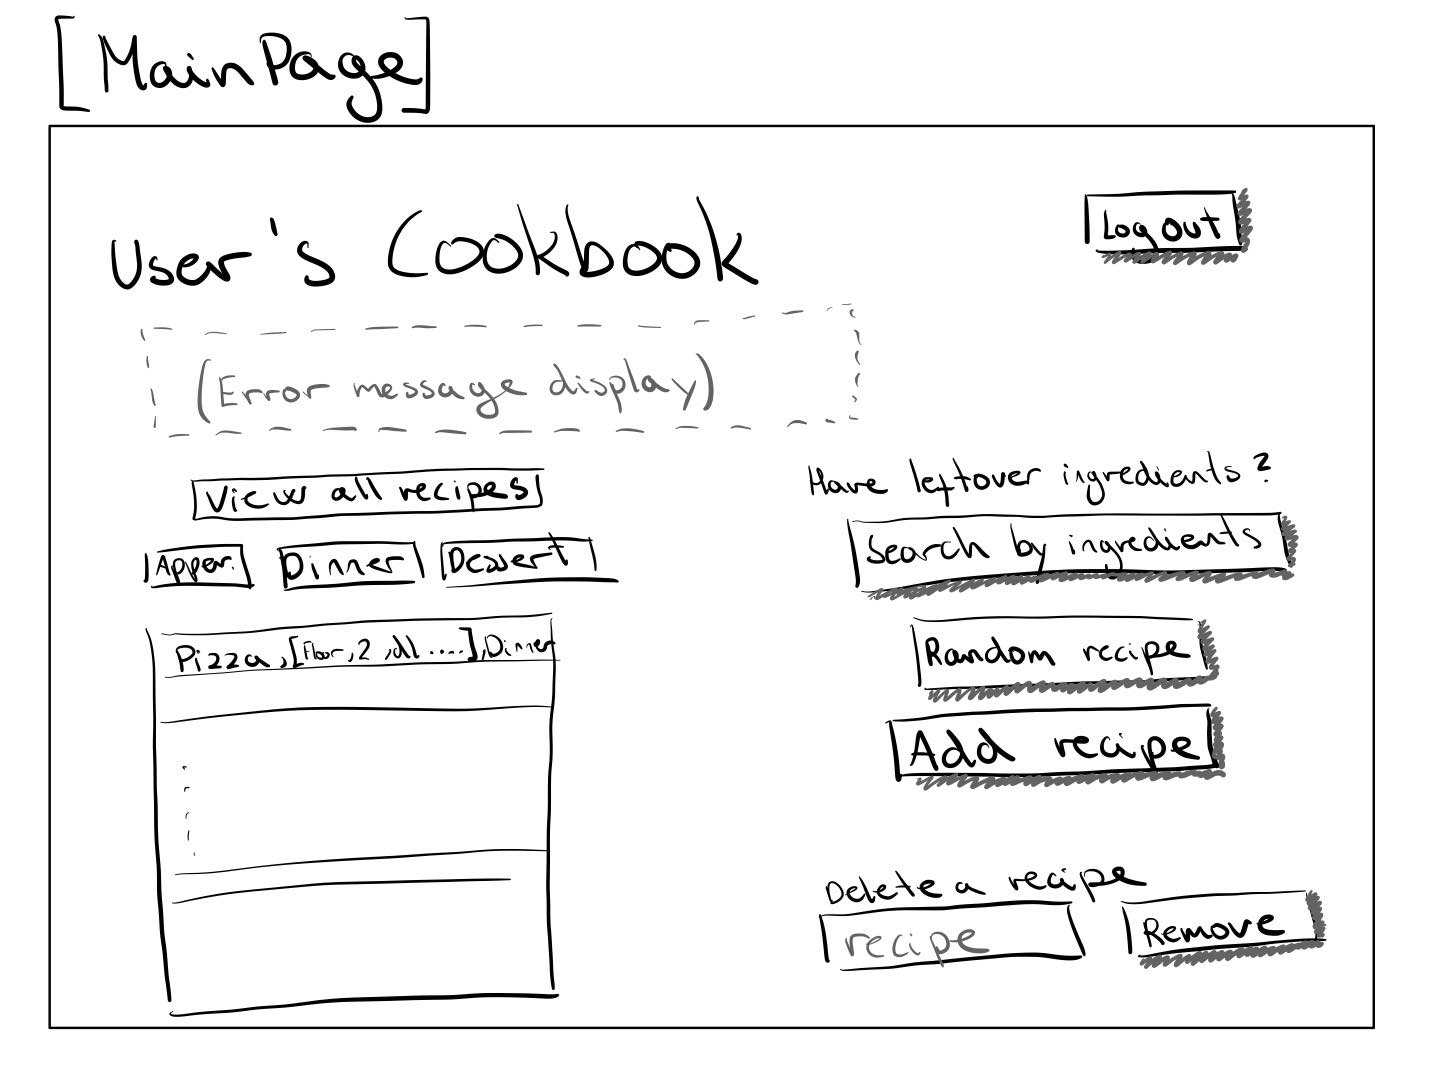 [MainPage]
User's Cookbook
Log out
(Error message display)
View all recipes
Apper. Dinner Dessert
Pizza, [Flour, 2, dl ....], Dinner
Have leftover ingredients?
Search by ingredients
Random recipe
Add recipe
Delete a recipe
recipe
Remove